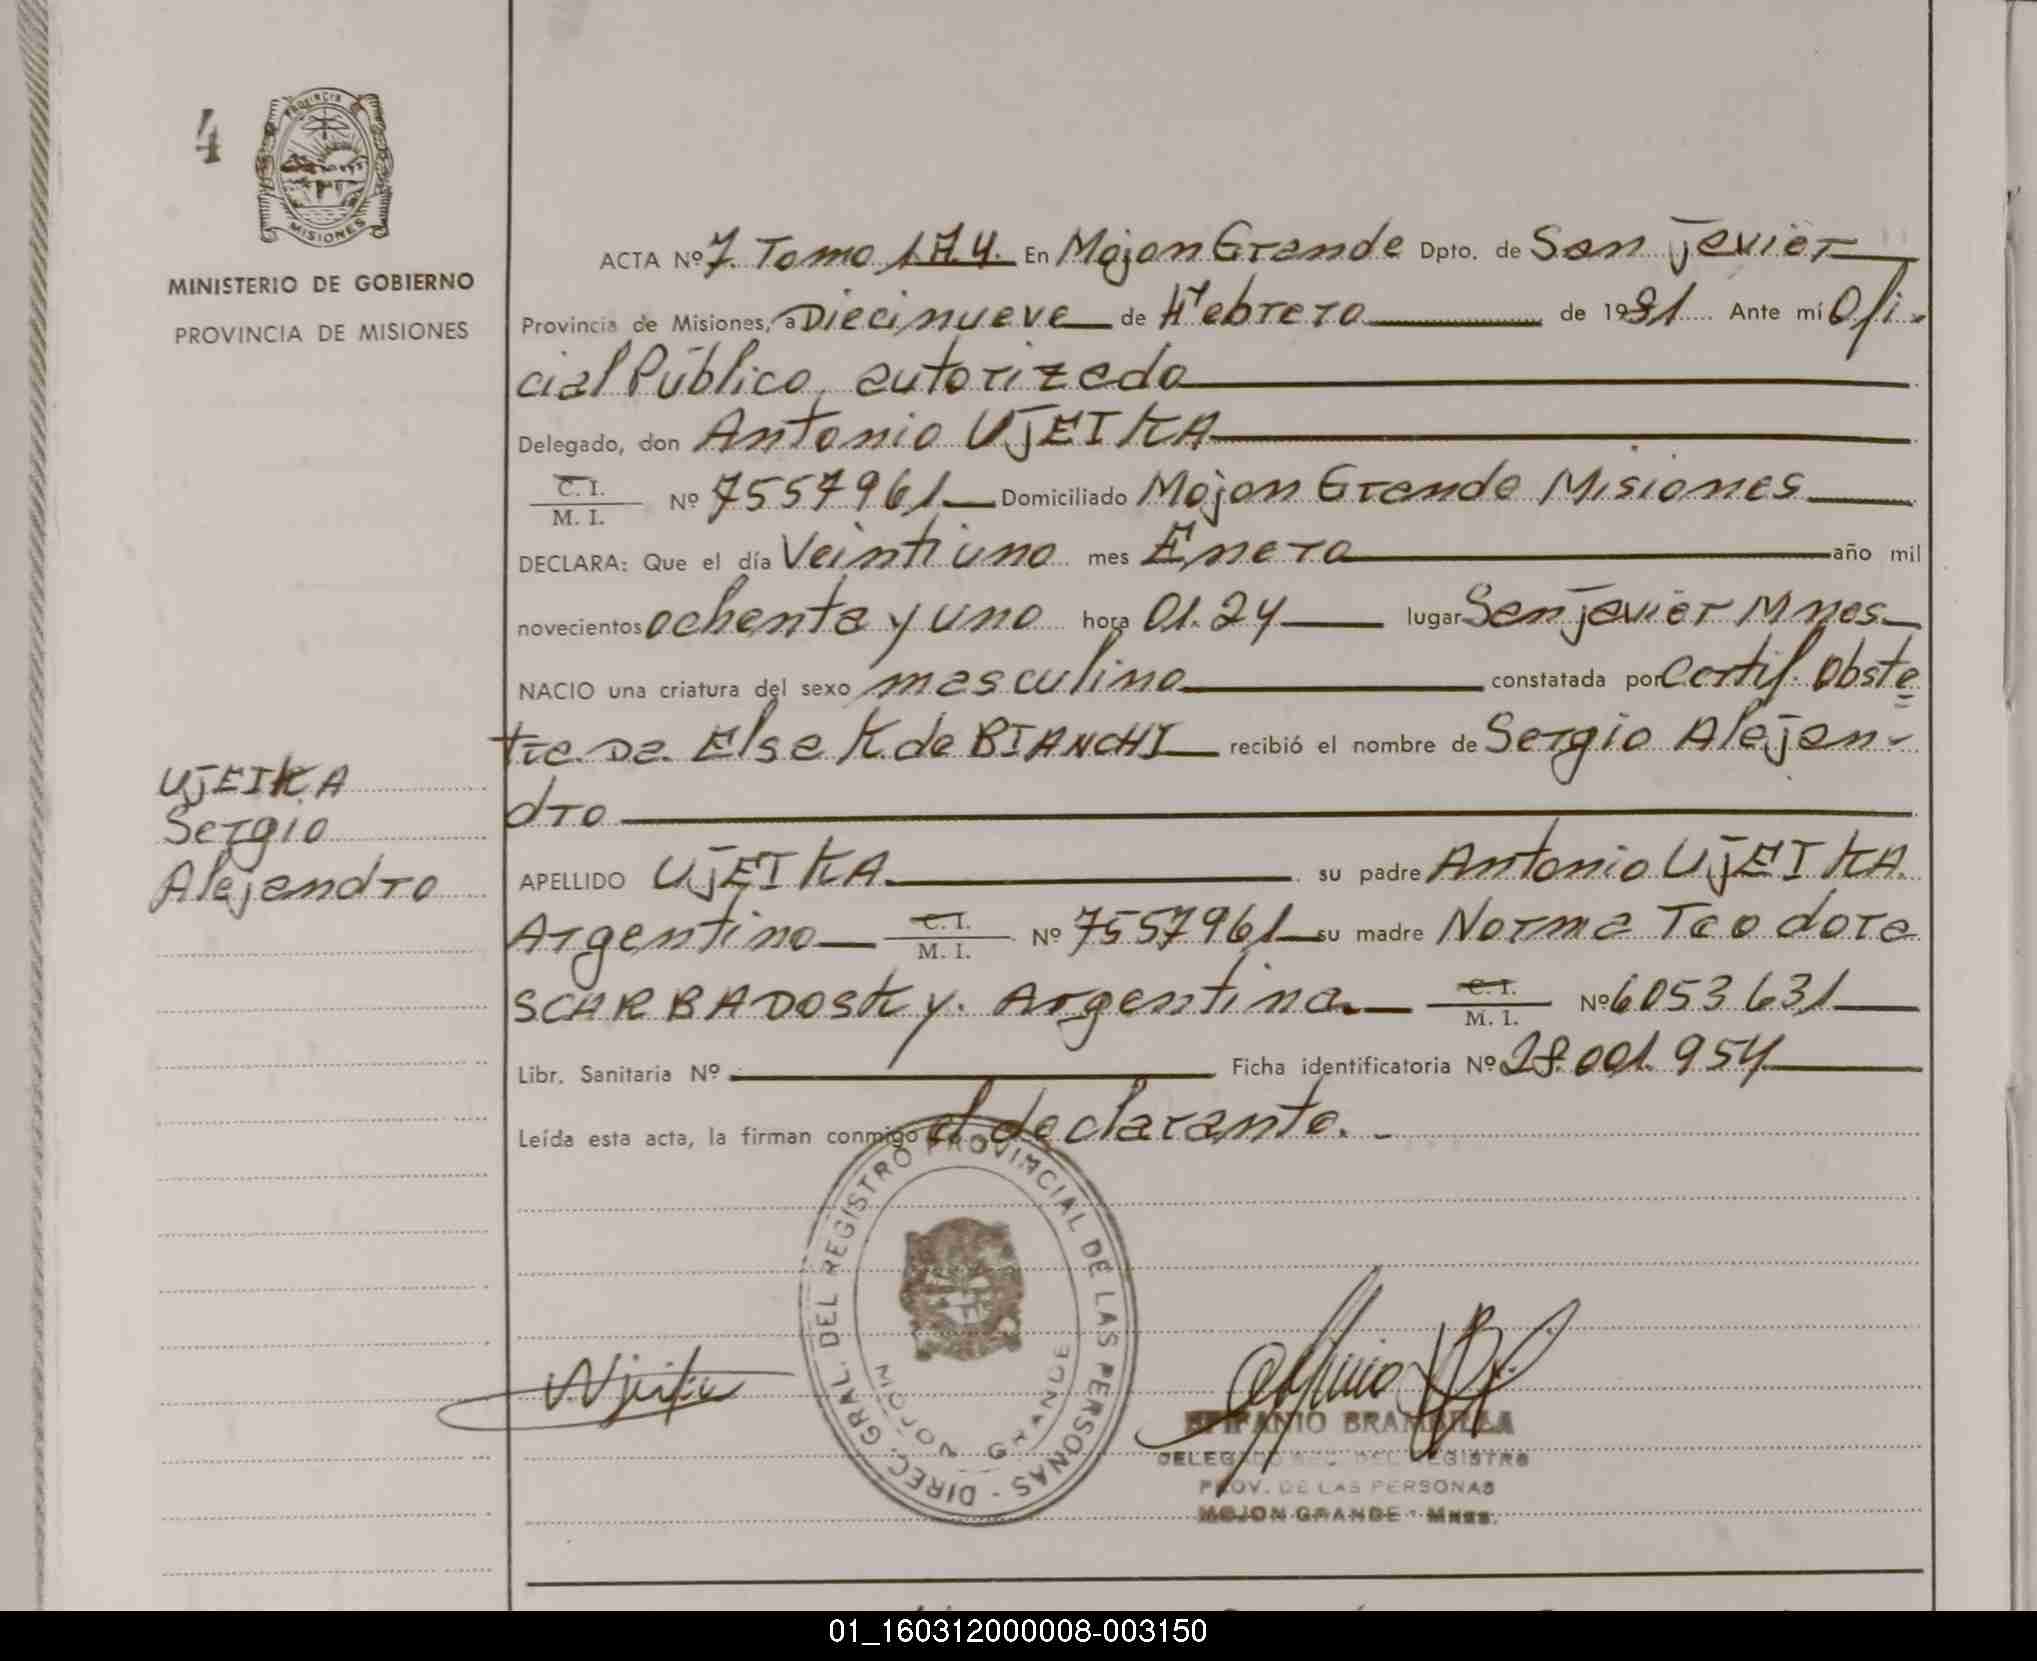 4
PROVINCIA
MISIONES
MINISTERIO DE GOBIERNO
PROVINCIA DE MISIONES
ACTA Nº 7. Tomo 174. En Mojon Grande Dpto. de San Javier
Provincia de Misiones, a Diecinueve de Febrero de 1981 Ante mí Ofi-
cial Público, autorizado
Delegado, don Antonio UJEIKA
C. I.
M. I. Nº 7557961 Domiciliado Mojon Grande Misiones
DECLARA: Que el día Veintiuno mes Enero año mil
novecientos ochenta y uno hora 01.24 lugar San Javier Mnes.
NACIO una criatura del sexo masculino constatada por Certif. Obste
tra. Da. Elsa K. de BIANCHI recibió el nombre de Sergio Alejan-
dro
UJEIKA
Sergio
Alejandro
APELLIDO UJEIKA su padre Antonio UJEIKA.
Argentino C. I.
M. I. Nº 7557961 su madre Norma Teodora
SCARBADOSKY. Argentina. C. I.
M. I. Nº 6053631
Libr. Sanitaria Nº Ficha identificatoria Nº 28.001.954
Leída esta acta, la firman conmigo el declarante. -
DIREC. GRAL. DEL REGISTRO PROVINCIAL DE LAS PERSONAS -
MOJON GRANDE
Ujeika
EPIFANIO BRAMBILLA
DELEGADO DEL REGISTRO
PROV. DE LAS PERSONAS
MOJON GRANDE - Mnes.
01_160312000008-003150